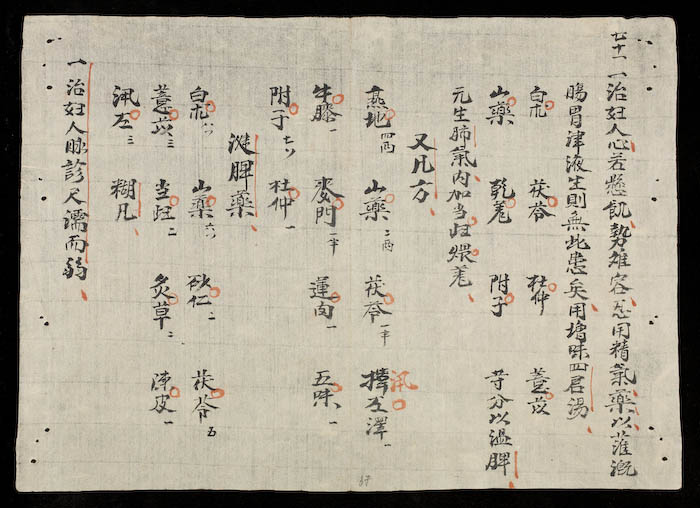 七十一 一治妇人心若悬飢勢难容忍用精氣藥以灌溉
腸胃津液生則無此患矣用増味四君湯
白朮 茯苓 杜仲 薏苡
山藥 乾姜 附子 等分以温脾
元生肺氣内加当归煨姜
又凡方
熟地四兩 山藥二兩 茯苓一半 澤一
牛膝一 麦門二半 蓮肉一 五味一
附子七分 杜仲一
健脾藥
白朮六 山藥六 砂仁二 茯苓五
薏苡三 当归二 炙草二 陳皮一
糊凡
一治妇人脉診尺濡而弱